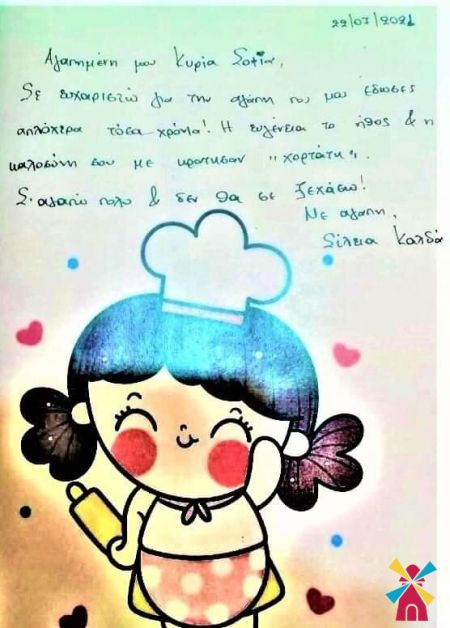 22/07/2021
Αγαπημένη μου Κυρία Σοφία,
Σε ευχαριστώ για την αγάπη που μου έδωσες
απλόχερα τόσα χρόνια! Η ευγένεια το ήθος & η
καλοσύνη σου με κρατησαν "χορτάτη".
Σ'αγαπώ πολύ & δεν θα σε ξεχάσω!
Με αγάπη,
Σίλεια Καλδά